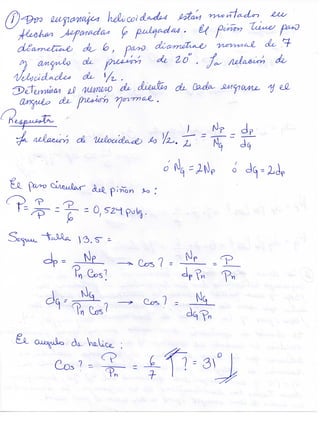 ① Dos engranajes helicoidales están montados en
flechas separadas 6 pulgadas. El piñon tiene paso
diametral de 6, paso diametral normal de 7
y angulo de presión de 20°. La relación de
Velocidades de 1/2.
Determinar el numero de dientes de cada engrane y el
angulo de presión normal.
Respuesta
La relación de velocidad es 1/2. 1/2 = Np/NG = dp/dG
ó NG = 2Np ó dG = 2dp
El paso circular del piñon es:
P = π/P = π/6 = 0,524 pulg.
Segun tabla 13.5 =
dp = Np/(Pn Cos?) → Cos? = Np/(dp Pn) = P/Pn
dG = NG/(Pn Cos?) → Cos? = NG/(dG Pn)
El angulo de helice:
Cos? = P/Pn = 6/7 ? = 31°